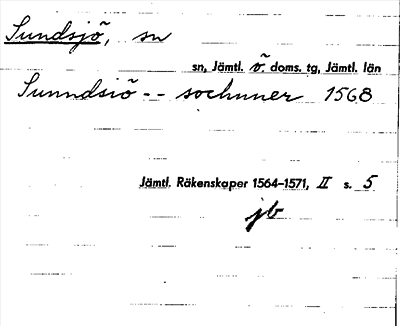 Sundsjö, sn
sn, Jämtl. v. doms. tg, Jämtl. län
Sunndsiö -- sochnner 1568
Jämtl. Räkenskaper 1564–1571, II s. 5
jb